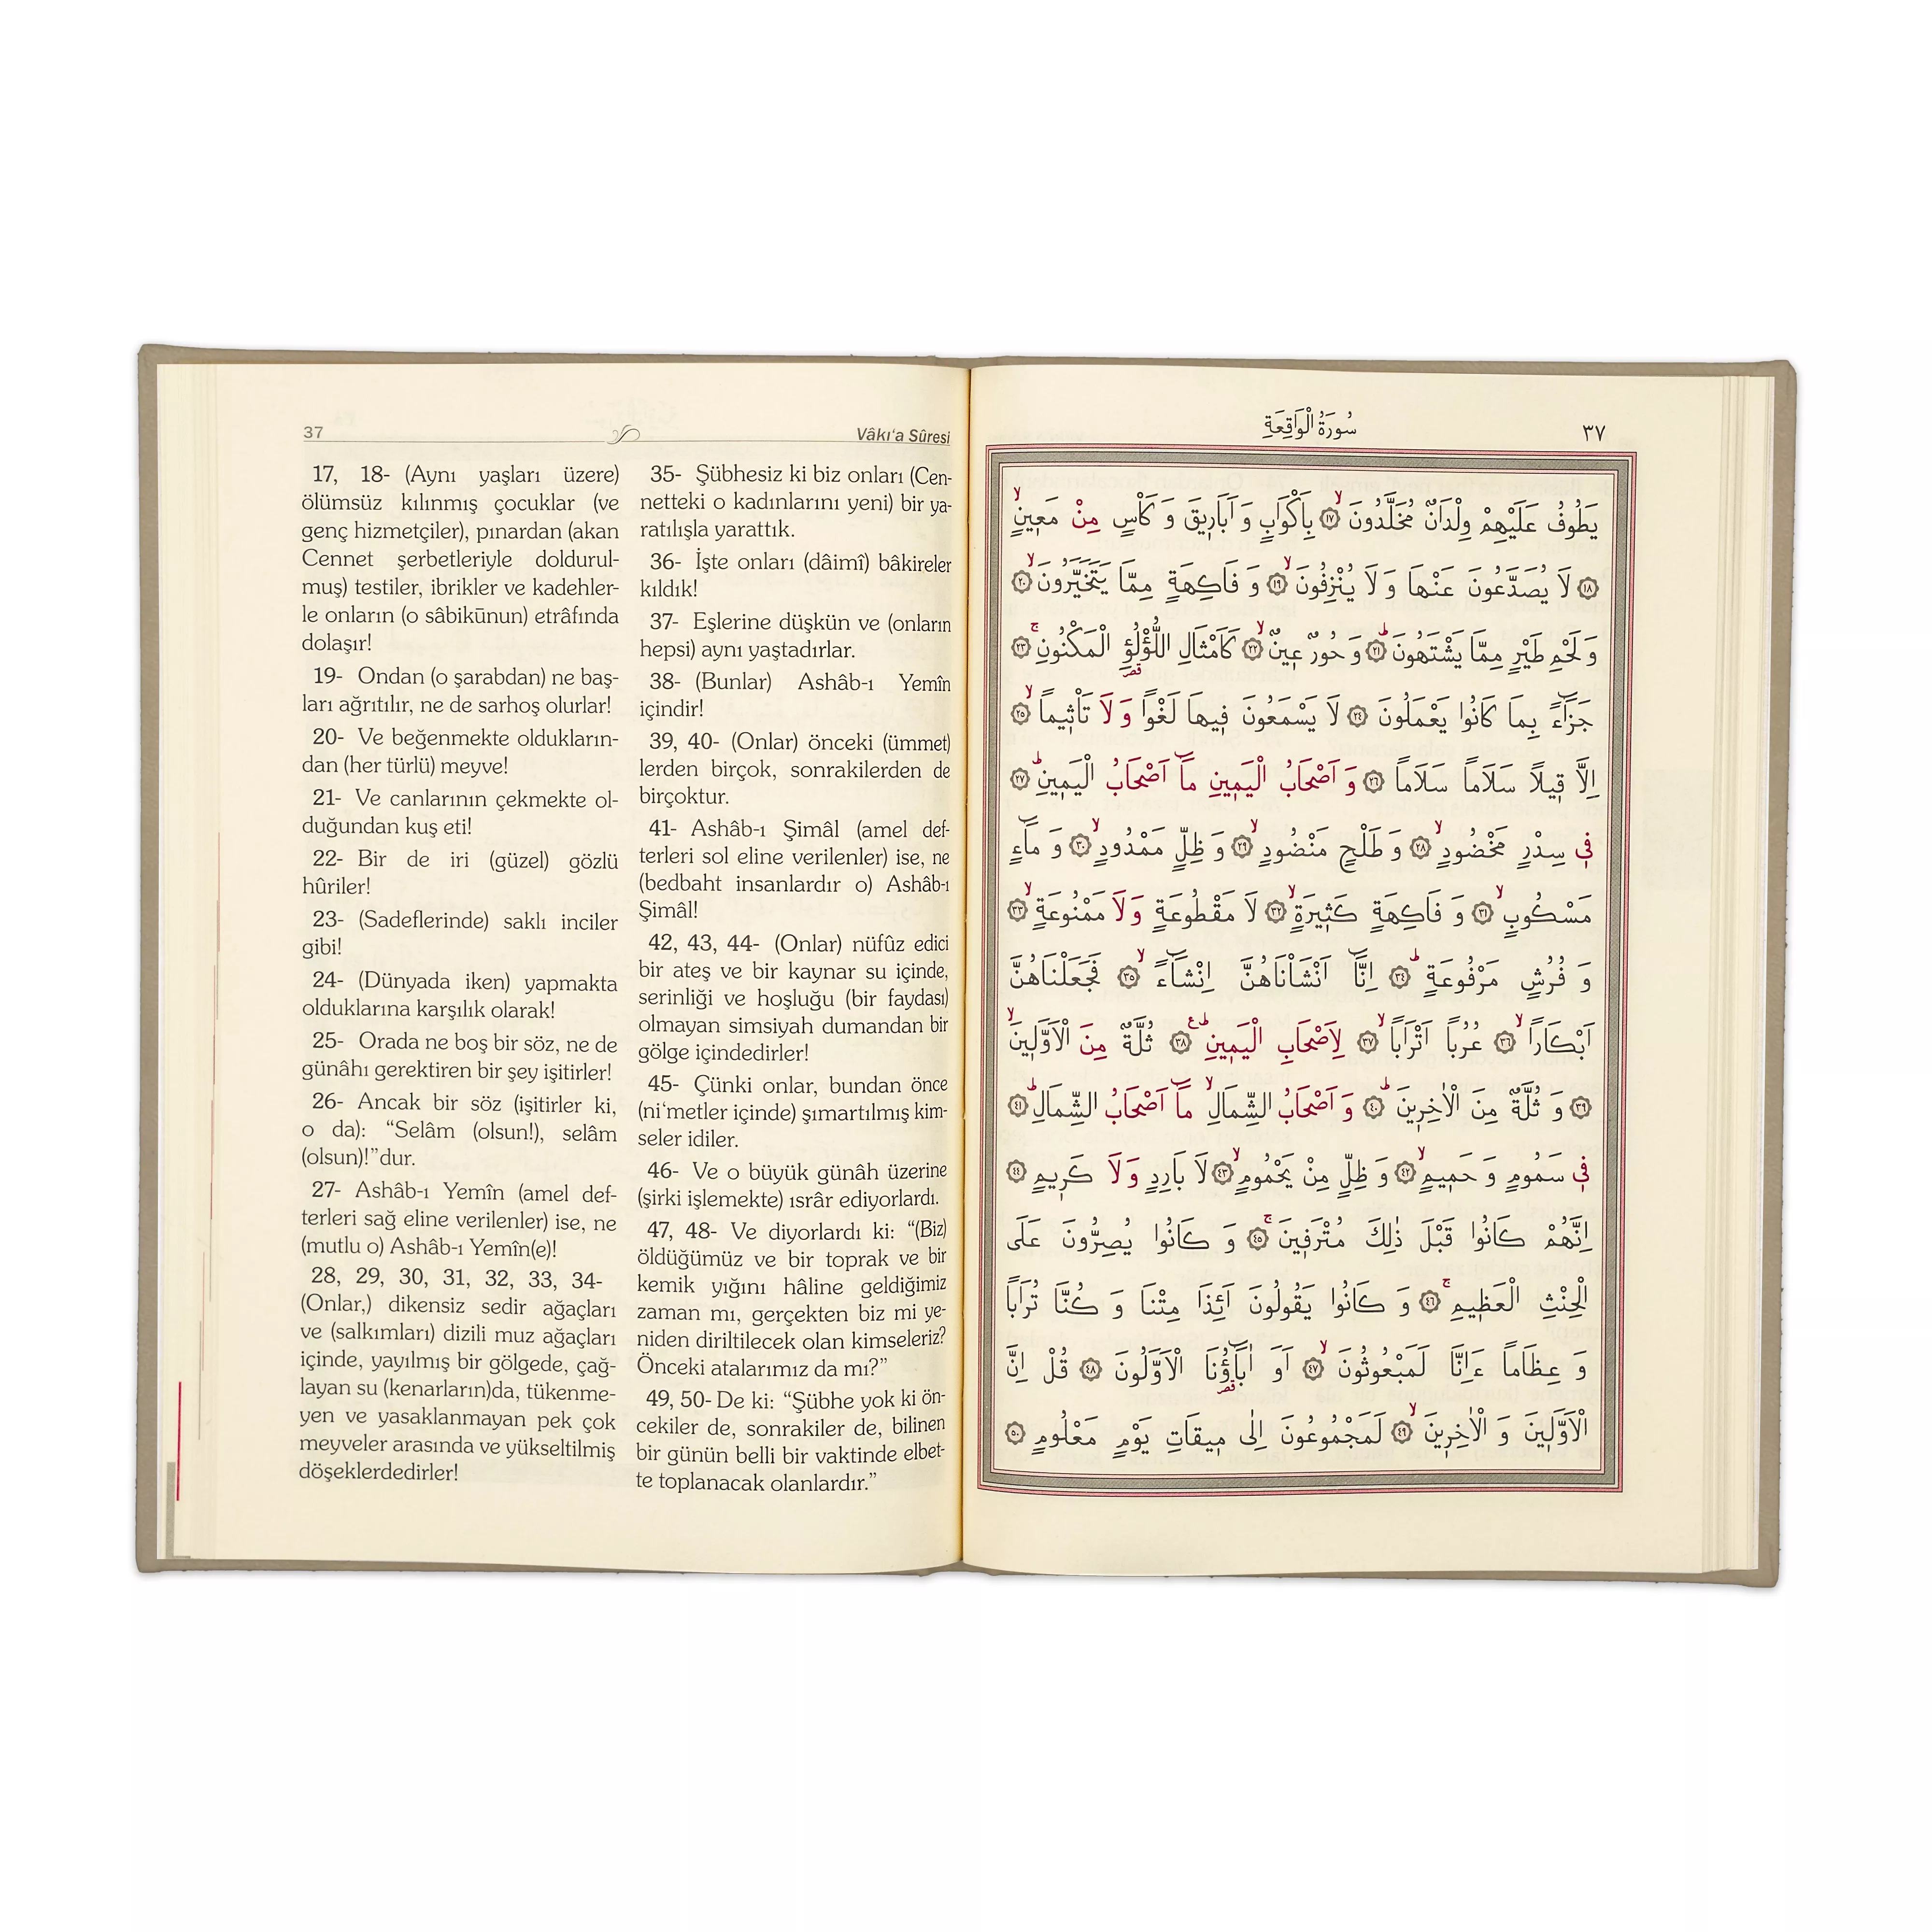 37
Vâkı‘a Sûresi
17, 18- (Aynı yaşları üzere)
ölümsüz kılınmış çocuklar (ve
genç hizmetçiler), pınardan (akan
Cennet şerbetleriyle doldurul-
muş) testiler, ibrikler ve kadehler-
le onların (o sâbikūnun) etrâfında
dolaşır!
19- Ondan (o şarabdan) ne baş-
ları ağrıtılır, ne de sarhoş olurlar!
20- Ve beğenmekte oldukların-
dan (her türlü) meyve!
21- Ve canlarının çekmekte ol-
duğundan kuş eti!
22- Bir de iri (güzel) gözlü
hûriler!
23- (Sadeflerinde) saklı inciler
gibi!
24- (Dünyada iken) yapmakta
olduklarına karşılık olarak!
25- Orada ne boş bir söz, ne de
günâhı gerektiren bir şey işitirler!
26- Ancak bir söz (işitirler ki,
o da): “Selâm (olsun!), selâm
(olsun)!”dur.
27- Ashâb-ı Yemîn (amel def-
terleri sağ eline verilenler) ise, ne
(mutlu o) Ashâb-ı Yemîn(e)!
28, 29, 30, 31, 32, 33, 34-
(Onlar,) dikensiz sedir ağaçları
ve (salkımları) dizili muz ağaçları
içinde, yayılmış bir gölgede, çağ-
layan su (kenarların)da, tükenme-
yen ve yasaklanmayan pek çok
meyveler arasında ve yükseltilmiş
döşeklerdedirler!
35- Şübhesiz ki biz onları (Cen-
netteki o kadınlarını yeni) bir ya-
ratılışla yarattık.
36- İşte onları (dâimî) bâkireler
kıldık!
37- Eşlerine düşkün ve (onların
hepsi) aynı yaştadırlar.
38- (Bunlar) Ashâb-ı Yemîn
içindir!
39, 40- (Onlar) önceki (ümmet)
lerden birçok, sonrakilerden de
birçoktur.
41- Ashâb-ı Şimâl (amel def-
terleri sol eline verilenler) ise, ne
(bedbaht insanlardır o) Ashâb-ı
Şimâl!
42, 43, 44- (Onlar) nüfûz edici
bir ateş ve bir kaynar su içinde,
serinliği ve hoşluğu (bir faydası)
olmayan simsiyah dumandan bir
gölge içindedirler!
45- Çünki onlar, bundan önce
(ni‘metler içinde) şımartılmış kim-
seler idiler.
46- Ve o büyük günâh üzerine
(şirki işlemekte) ısrâr ediyorlardı.
47, 48- Ve diyorlardı ki: “(Biz)
öldüğümüz ve bir toprak ve bir
kemik yığını hâline geldiğimiz
zaman mı, gerçekten biz mi ye-
niden diriltilecek olan kimseleriz?
Önceki atalarımız da mı?”
49, 50- De ki: “Şübhe yok ki ön-
cekiler de, sonrakiler de, bilinen
bir günün belli bir vaktinde elbet-
te toplanacak olanlardır.”
سُورَةُ الْوَاقِعَةِ
٣٧
يَطُوفُ عَلَيْهِمْ وِلْدَانٌ مُخَلَّدُونَۙ ١٧ بِاَكْوَابٍ وَ اَبَارٖيقَ وَ كَاْسٍ مِنْ مَعٖينٍۙ
١٨ لَا يُصَدَّعُونَ عَنْهَا وَ لَا يُنْزِفُونَۙ ١٩ وَ فَاكِهَةٍ مِمَّا يَتَخَيَّرُونَۙ ٢٠
وَ لَحْمِ طَيْرٍ مِمَّا يَشْتَهُونَؕ ٢١ وَ حُورٌ عٖينٌۙ ٢٢ كَاَمْثَالِ اللُّؤْلُؤِ الْمَكْنُونِۚ ٢٣
جَزَٓاءً بِمَا كَانُوا يَعْمَلُونَ ٢٤ لَا يَسْمَعُونَ فٖيهَا لَغْواً وَ لَا تَاْثٖيماًۙ ٢٥
اِلَّا قٖيلاً سَلَاماً سَلَاماً ٢٦ وَ اَصْحَابُ الْيَمٖينِ مَٓا اَصْحَابُ الْيَمٖينِؕ ٢٧
فٖي سِدْرٍ مَخْضُودٍۙ ٢٨ وَ طَلْحٍ مَنْضُودٍۙ ٢٩ وَ ظِلٍّ مَمْدُودٍۙ ٣٠ وَ مَٓاءٍ
مَسْكُوبٍۙ ٣١ وَ فَاكِهَةٍ كَثٖيرَةٍۙ ٣٢ لَا مَقْطُوعَةٍ وَ لَا مَمْنُوعَةٍۙ ٣٣
وَ فُرُشٍ مَرْفُوعَةٍؕ ٣٤ اِنَّٓا اَنْشَاْنَاهُنَّ اِنْشَٓاءًۙ ٣٥ فَجَعَلْنَاهُنَّ
اَبْكَاراًۙ ٣٦ عُرُباً اَتْرَاباًۙ ٣٧ لِاَصْحَابِ الْيَمٖينِؕ ع ٣٨ ثُلَّةٌ مِنَ الْاَوَّلٖينَۙ
٣٩ وَ ثُلَّةٌ مِنَ الْاٰخِرٖينَؕ ٤٠ وَ اَصْحَابُ الشِّمَالِۙ مَٓا اَصْحَابُ الشِّمَالِؕ ٤١
فٖي سَمُومٍ وَ حَمٖيمٍۙ ٤٢ وَ ظِلٍّ مِنْ يَحْمُومٍۙ ٤٣ لَا بَارِدٍ وَ لَا كَرٖيمٍ ٤٤
اِنَّهُمْ كَانُوا قَبْلَ ذٰلِكَ مُتْرَفٖينَۚ ٤٥ وَ كَانُوا يُصِرُّونَ عَلَى
الْحِنْثِ الْعَظٖيمِۚ ٤٦ وَ كَانُوا يَقُولُونَ اَئِذَا مِتْنَا وَ كُنَّا تُرَاباً
وَ عِظَاماً ءَاِنَّا لَمَبْعُوثُونَۙ ٤٧ اَوَ اٰبَٓاؤُنَا الْاَوَّلُونَ ٤٨ قُلْ اِنَّ
الْاَوَّلٖينَ وَ الْاٰخِرٖينَۙ ٤٩ لَمَجْمُوعُونَ اِلٰى مٖيقَاتِ يَوْمٍ مَعْلُومٍ ٥٠